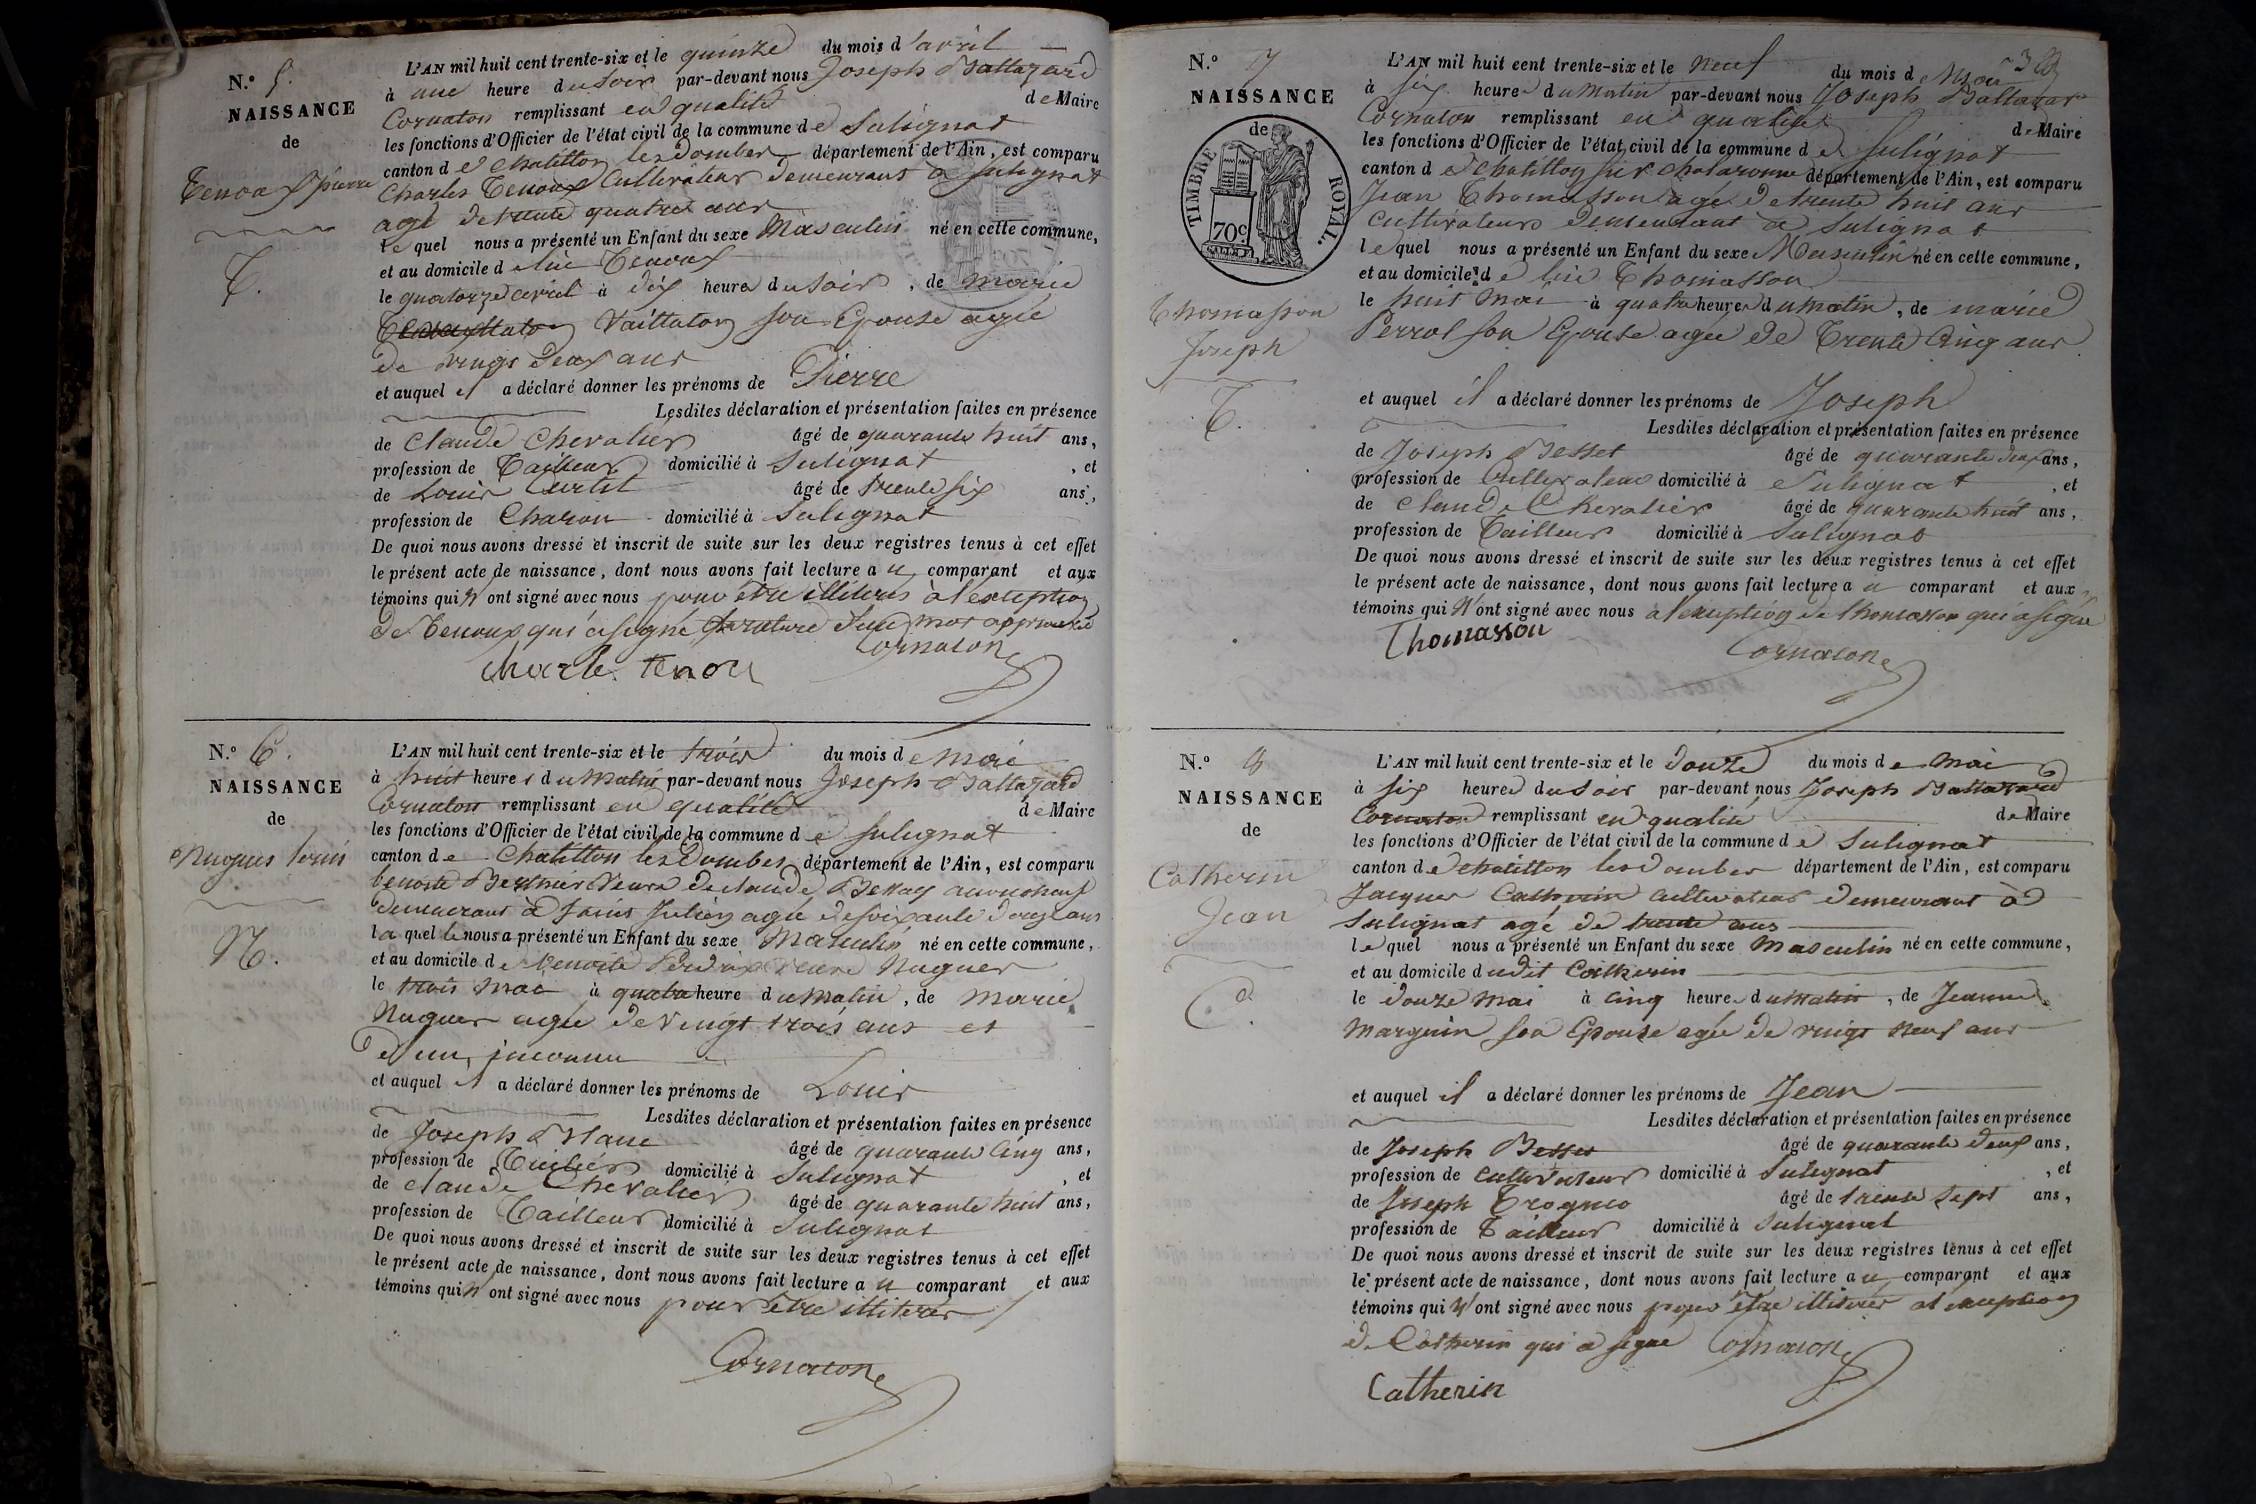 N.º 5.
NAISSANCE
de
Tenoux pierre
T.
L'AN mil huit cent trente-six et le quinze du mois d'avril
à une heure du soir par-devant nous Joseph Baltazard
Cornaton remplissant en qualité de Maire
les fonctions d'Officier de l'état civil de la commune de Sulignat
canton de chatillon les Dombes département de l'Ain, est comparu
Charles Tenoux Cultivateur demeurant à Sulignat
agé de trente quatre ans
lequel nous a présenté un Enfant du sexe Masculin né en cette commune,
et au domicile de lui Tenoux
le quatorze avril à dix heures du soir, de marie
Vaillaton son Epouse agée
de vingt deux ans
et auquel il a déclaré donner les prénoms de Pierre
Lesdites déclaration et présentation faites en présence
de Claude Chevalier âgé de quarante huit ans,
profession de Tailleur domicilié à Sulignat, et
de Louis Curtil âgé de trente six ans,
profession de Charon domicilié à Sulignat
De quoi nous avons dressé et inscrit de suite sur les deux registres tenus à cet effet
le présent acte de naissance, dont nous avons fait lecture au comparant et aux
témoins qui n'ont signé avec nous pour être illiterés à l'exception
de Tenoux qui a signé
Cornaton
Charle tenou
N.º 6.
NAISSANCE
de
Nugues Louis
N.
L'AN mil huit cent trente-six et le trois du mois de mai
à huit heures du Matin par-devant nous Joseph Baltazard
Cornaton remplissant en qualité de Maire
les fonctions d'Officier de l'état civil de la commune de Sulignat
canton de Chatillon les Dombes département de l'Ain, est comparu
benoite Berthier Veuve de claude
demeurant à Saint Julien agée de soixante douze ans
laquelle nous a présenté un Enfant du sexe Masculin né en cette commune,
et au domicile de benoite veuve Nugues
le trois mai à quatre heure du Matin, de Marie
Nugues agée de Vingt trois ans et
d'un inconnu
et auquel il a déclaré donner les prénoms de Louis
Lesdites déclaration et présentation faites en présence
de Joseph âgé de quarante cinq ans,
profession de Tuilier domicilié à Sulignat, et
de claude Chevalier âgé de quarante huit ans,
profession de Tailleur domicilié à Sulignat
De quoi nous avons dressé et inscrit de suite sur les deux registres tenus à cet effet
le présent acte de naissance, dont nous avons fait lecture au comparant et aux
témoins qui n'ont signé avec nous pour être illiterés
Cornaton
N.º 7
NAISSANCE
de
TIMBRE ROYAL.
70c.
Thomasson
Joseph
T.
L'AN mil huit cent trente-six et le neuf du mois de Mai
à six heures du Matin par-devant nous Joseph Baltazar
Cornaton remplissant en qualité de Maire
les fonctions d'Officier de l'état civil de la commune de Sulignat
canton de Chatillon sur chalaronne département de l'Ain, est comparu
Jean Thomasson agé de trente huit ans
Cultivateur demeurant à Sulignat
lequel nous a présenté un Enfant du sexe Masculin né en cette commune,
et au domicile de lui Thomasson
le huit Mai à quatre heures du Matin, de marie
Perrol son Epouse agée de Trente Cinq ans
et auquel il a déclaré donner les prénoms de Joseph
Lesdites déclaration et présentation faites en présence
de Joseph Besset âgé de quarante deux ans,
profession de Cultivateur domicilié à Sulignat, et
de Claude Chevalier âgé de quarante huit ans,
profession de Tailleur domicilié à Sulignat
De quoi nous avons dressé et inscrit de suite sur les deux registres tenus à cet effet
le présent acte de naissance, dont nous avons fait lecture au comparant et aux
témoins qui n'ont signé avec nous à l'exception de thomasson qui a signé
Thomasson
Cornaton
N.º 8
NAISSANCE
de
Catherin
Jean
C.
L'AN mil huit cent trente-six et le douze du mois de mai
à six heures du soir par-devant nous Joseph Baltazard
Cornaton remplissant en qualité de Maire
les fonctions d'Officier de l'état civil de la commune de Sulignat
canton de chatillon les dombes département de l'Ain, est comparu
Jacques Catherin cultivateur demeurant à
Sulignat agé de trente ans
lequel nous a présenté un Enfant du sexe Masculin né en cette commune,
et au domicile dudit Catherin
le douze mai à cinq heures du Matin, de Jeanne
Marguin son Epouse agée de vingt neuf ans
et auquel il a déclaré donner les prénoms de Jean
Lesdites déclaration et présentation faites en présence
de Joseph Besset âgé de quarante deux ans,
profession de cultivateur domicilié à Sulignat, et
de Joseph âgé de trente sept ans,
profession de Tailleur domicilié à Sulignat
De quoi nous avons dressé et inscrit de suite sur les deux registres tenus à cet effet
le présent acte de naissance, dont nous avons fait lecture au comparant et aux
témoins qui n'ont signé avec nous pour être illiterés à l'exception
de Catherin qui a signé Cornaton
Catherin